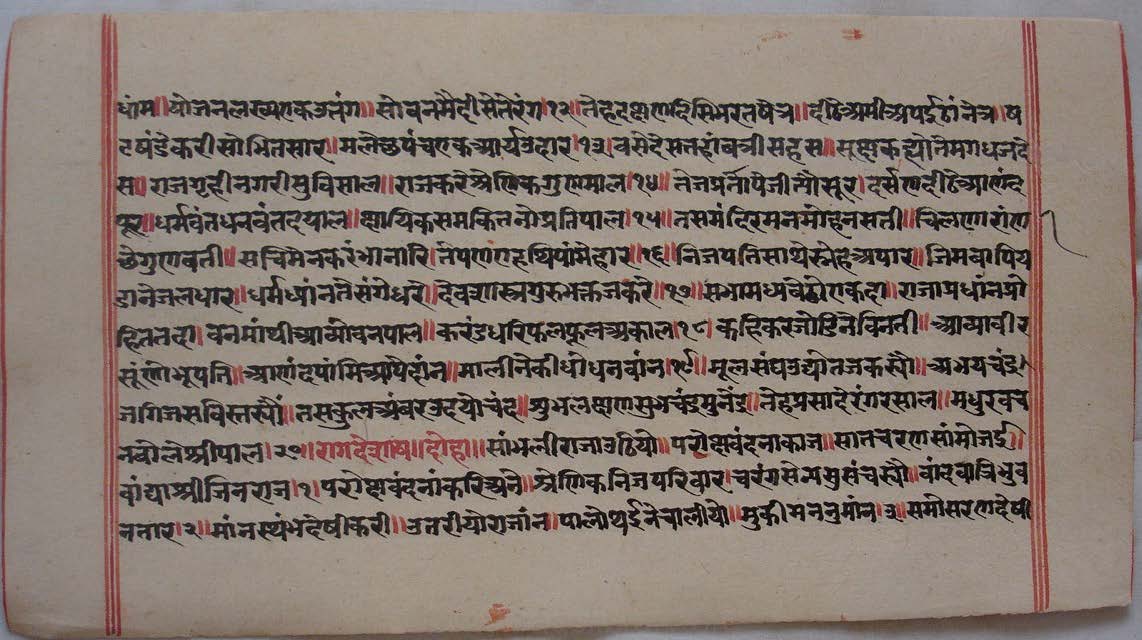 धांम॥ योजनलख्यएकउत्तंग॥ सोवनमैदीसेतेरंग।१२। तेहदक्षणदिसिभरतषेत्र॥ दीठेअमीअपईठांनेत्र॥ ष
टषंडेकरीसोभितसार॥ मलेछपंचएकआर्यउदार।१३। वसेदेसतहांबत्रीसहस॥ सूक्ष्मकह्योनैमगधजनदे
स॥ राजगृहीनगरीसुविसाल॥ राजकरेश्रेणिकगुणमाल।१४। तेजप्रतापेजीत्योसूर। दर्सणदीठेआणंद
पूर॥ धर्मवंतधनवंतदयाल॥ क्षायिकसमकितनोप्रतिपाल।१५। तसमंदिरमनमोहनसती॥ चिलणारांण
छेगुणवती॥ सचिमेनकरंभानारि। तेपणएहथिपांमेहार॥१६॥ निजपतिसाथेस्नेहअपार॥ जिमबापिय
डानेजलधार॥ धर्मध्यांनतेसंगेधरे॥ देवशास्त्रगुरुभक्तजकरे॥१७॥ सभामध्यबेठोएकदा॥ राजाप्रधांनप्रो
हिततदा। वनमांथीआव्योवनपाल॥ करंडधरिफलफूलअकाल।१८। कहिकरजोडिनेविनती॥ आव्यावीर
सुंणोभूपति॥ आणंदपांमिआपेदांन॥ मालीनेकीधोधनवांन।१९। मूलसंघउद्योतजकस्यौ॥ अभयचंद्र।
जगिजसविस्तस्यौ॥ तसकुलअंबरउदयोचंद॥ शुभलक्षणसुभचंद्रमुनेंद्र॥ तेहप्रसादेरंगरसाल॥ मधुरवच
नबोलेश्रीपाल।२०॥ रागदेशाष॥ दोहा॥ सांभलीराजाउठियो॥ परोक्षवंदनाकाज॥ सातचरणसांमोजई॥
वांद्याश्रीजिनराज।१। परोक्षवंदनांकरिअने॥ श्रेणिकनिजपरिवार। चरंगसेन्यसुसंचस्यौ॥ वांदवात्रिभुव
नतार।२॥ मांनस्थंभदेषीकरी॥ उतरीयोराजांन॥ पालोथईनेचालीयो॥ मुकीमननुमांन।३॥ समोसरणदेषी